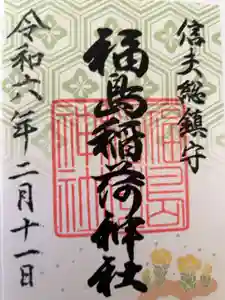 信夫總鎮守
福島稲荷神社
令和六年二月十一日